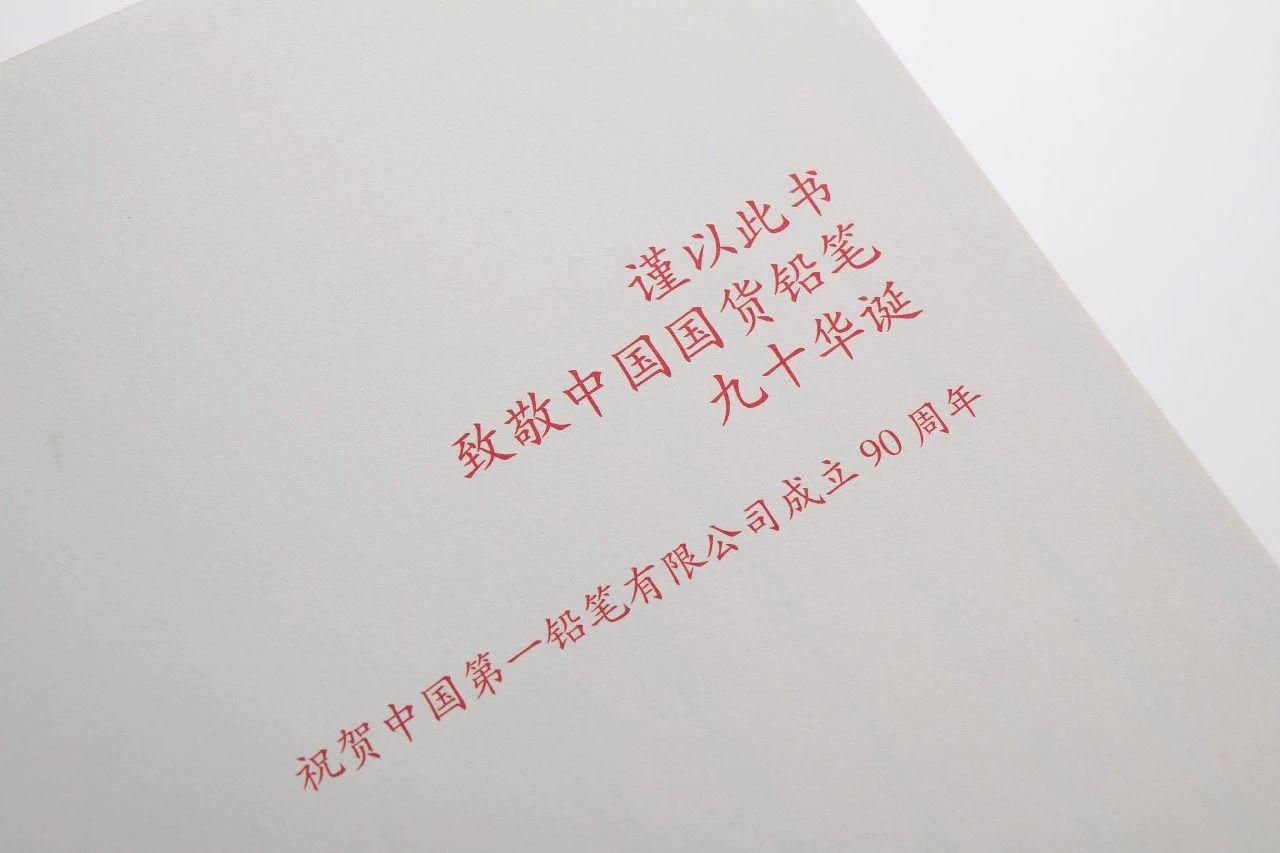 谨以此书
致敬中国国货铅笔
九十华诞
祝贺中国第一铅笔有限公司成立 90 周年